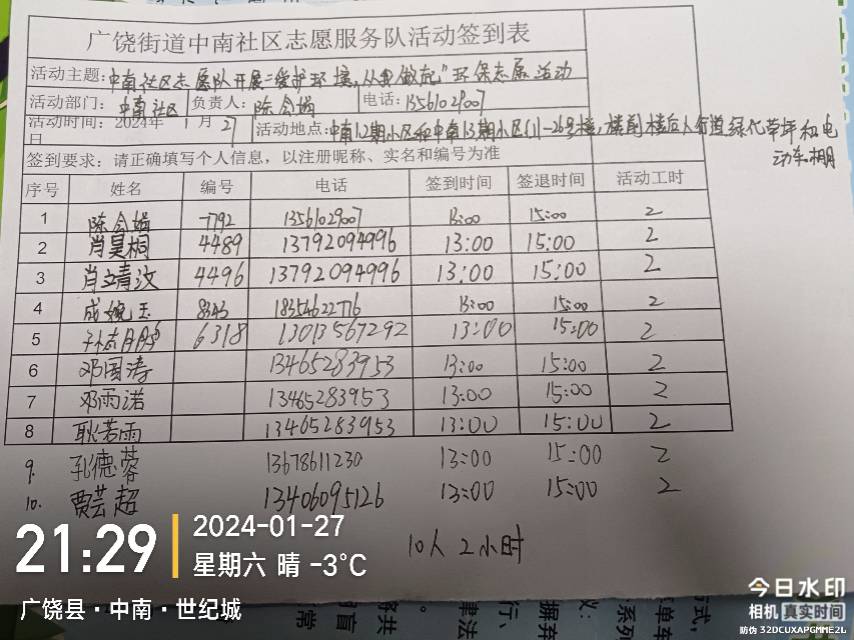 广饶街道中南社区志愿服务队活动签到表
活动主题:中南社区志愿队开展"爱护环境,从我做起"环保志愿活动
活动部门:中南社区 负责人:陈会娟 电话:13561029007
活动时间:2024年 1月27日 活动地点:中南12期小区和中南13期小区(11-26号楼,楼前楼后人行道绿化草坪和电动车棚
签到要求:请正确填写个人信息,以注册昵称、实名和编号为准
序号 姓名 编号 电话 签到时间 签退时间 活动工时
1 陈会娟 7792 13561029007 13:00 15:00 2
2 肖昊桐 4489 13792094996 13:00 15:00 2
3 肖立清汶 4496 13792094996 13:00 15:00 2
4 成婉玉 8343 18354622716 13:00 15:00 2
5 6318 13013567292 13:00 15:00 2
6 邓国涛 13465283953 13:00 15:00 2
7 邓雨诺 13465283953 13:00 15:00 2
8 耿若雨 13465283953 13:00 15:00 2
9. 孔德蓉 13678611230 13:00 15:00 2
10. 贾芸超 13406095126 13:00 15:00 2
10人 2小时
21:29
2024-01-27
星期六 晴 -3℃
广饶县·中南·世纪城
今日水印
相机 真实时间
防伪 32DCUXAPGMME2L